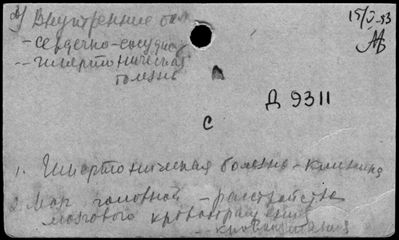 а) Внутренние бол
15/V-83
- сердечно-сосудис
-- гипертоническая
болезнь
Д 9311
с
1. Гипертоническая болезнь - клиника
2. Мозг головной - расстройства
мозгового кровообращения
-- кровоизлияния